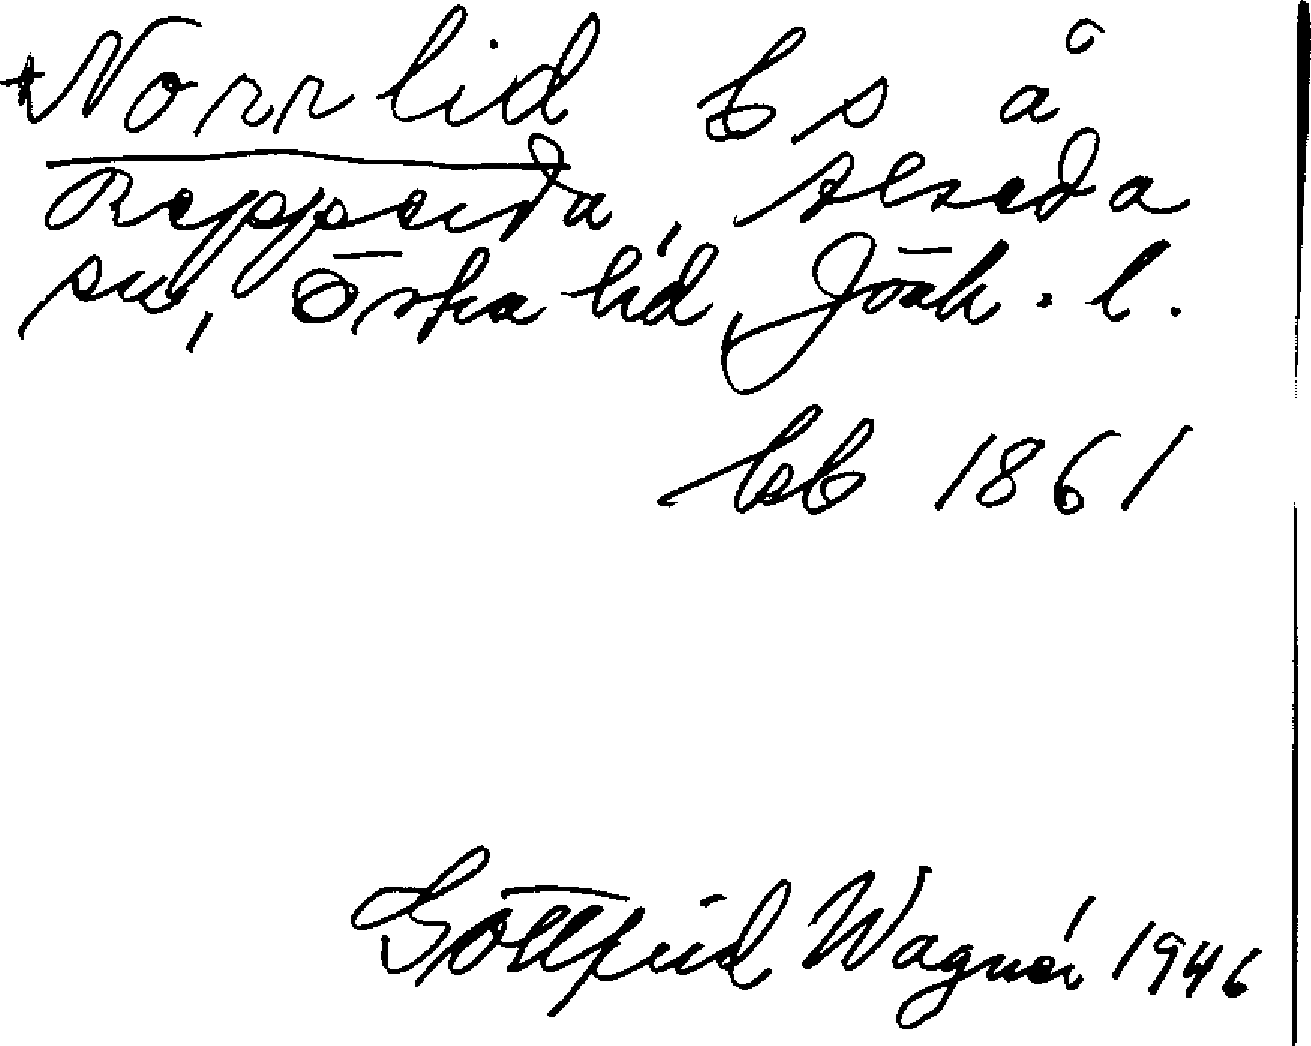 *Norrlid bs å
Reppeda, Alseda
sn, Östra hd, Jönk. l.
lsb 1861
Gottfrid Wagnér 1946